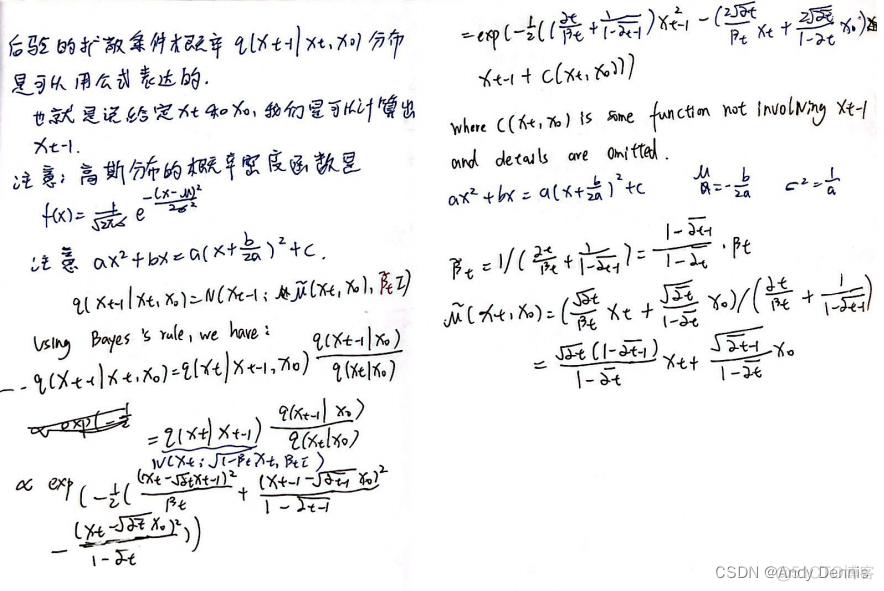 后验的扩散条件概率 q(Xt-1|Xt,X0) 分布
是可以用公式表达的.
也就是说给定Xt和X0, 我们是可以计算出
Xt-1.
注意: 高斯分布的概率密度函数是
f(x)=1/√2πσ e^(-(x-μ)²/2σ²)
注意 ax²+bx=a(x+b/2a)²+c.
q(Xt-1|Xt,X0)=N(Xt-1; μ̃(Xt,X0), β̃t I)
Using Bayes's rule, we have:
q(Xt-1|Xt,X0)=q(Xt|Xt-1,X0) q(Xt-1|X0)/q(Xt|X0)
∝ exp(-1/2
=q(Xt|Xt-1) q(Xt-1|X0)/q(Xt|X0)
N(Xt; √1-βt Xt, βt I)
∝ exp(-1/2((Xt-√αt Xt-1)²/βt + (Xt-1-√ᾱt-1 X0)²/1-ᾱt-1
-(Xt-√ᾱt X0)²/1-ᾱt))
=exp(-1/2((αt/βt+1/1-ᾱt-1)Xt-1²-(2√αt/βt Xt+2√ᾱt/1-ᾱt X0)
Xt-1+C(Xt,X0)))
where C(Xt,X0) is some function not involving Xt-1
and details are omitted.
ax²+bx=a(x+b/2a)²+c μ=-b/2a σ²=1/a
β̃t=1/(αt/βt+1/1-ᾱt-1)=1-ᾱt-1/1-ᾱt·βt
μ̃(Xt,X0)=(√αt/βt Xt+√ᾱt/1-ᾱt X0)/(αt/βt+1/1-ᾱt-1)
=√αt(1-ᾱt-1)/1-ᾱt Xt+√ᾱt-1/1-ᾱt X0
CSDN @Andy Dennis